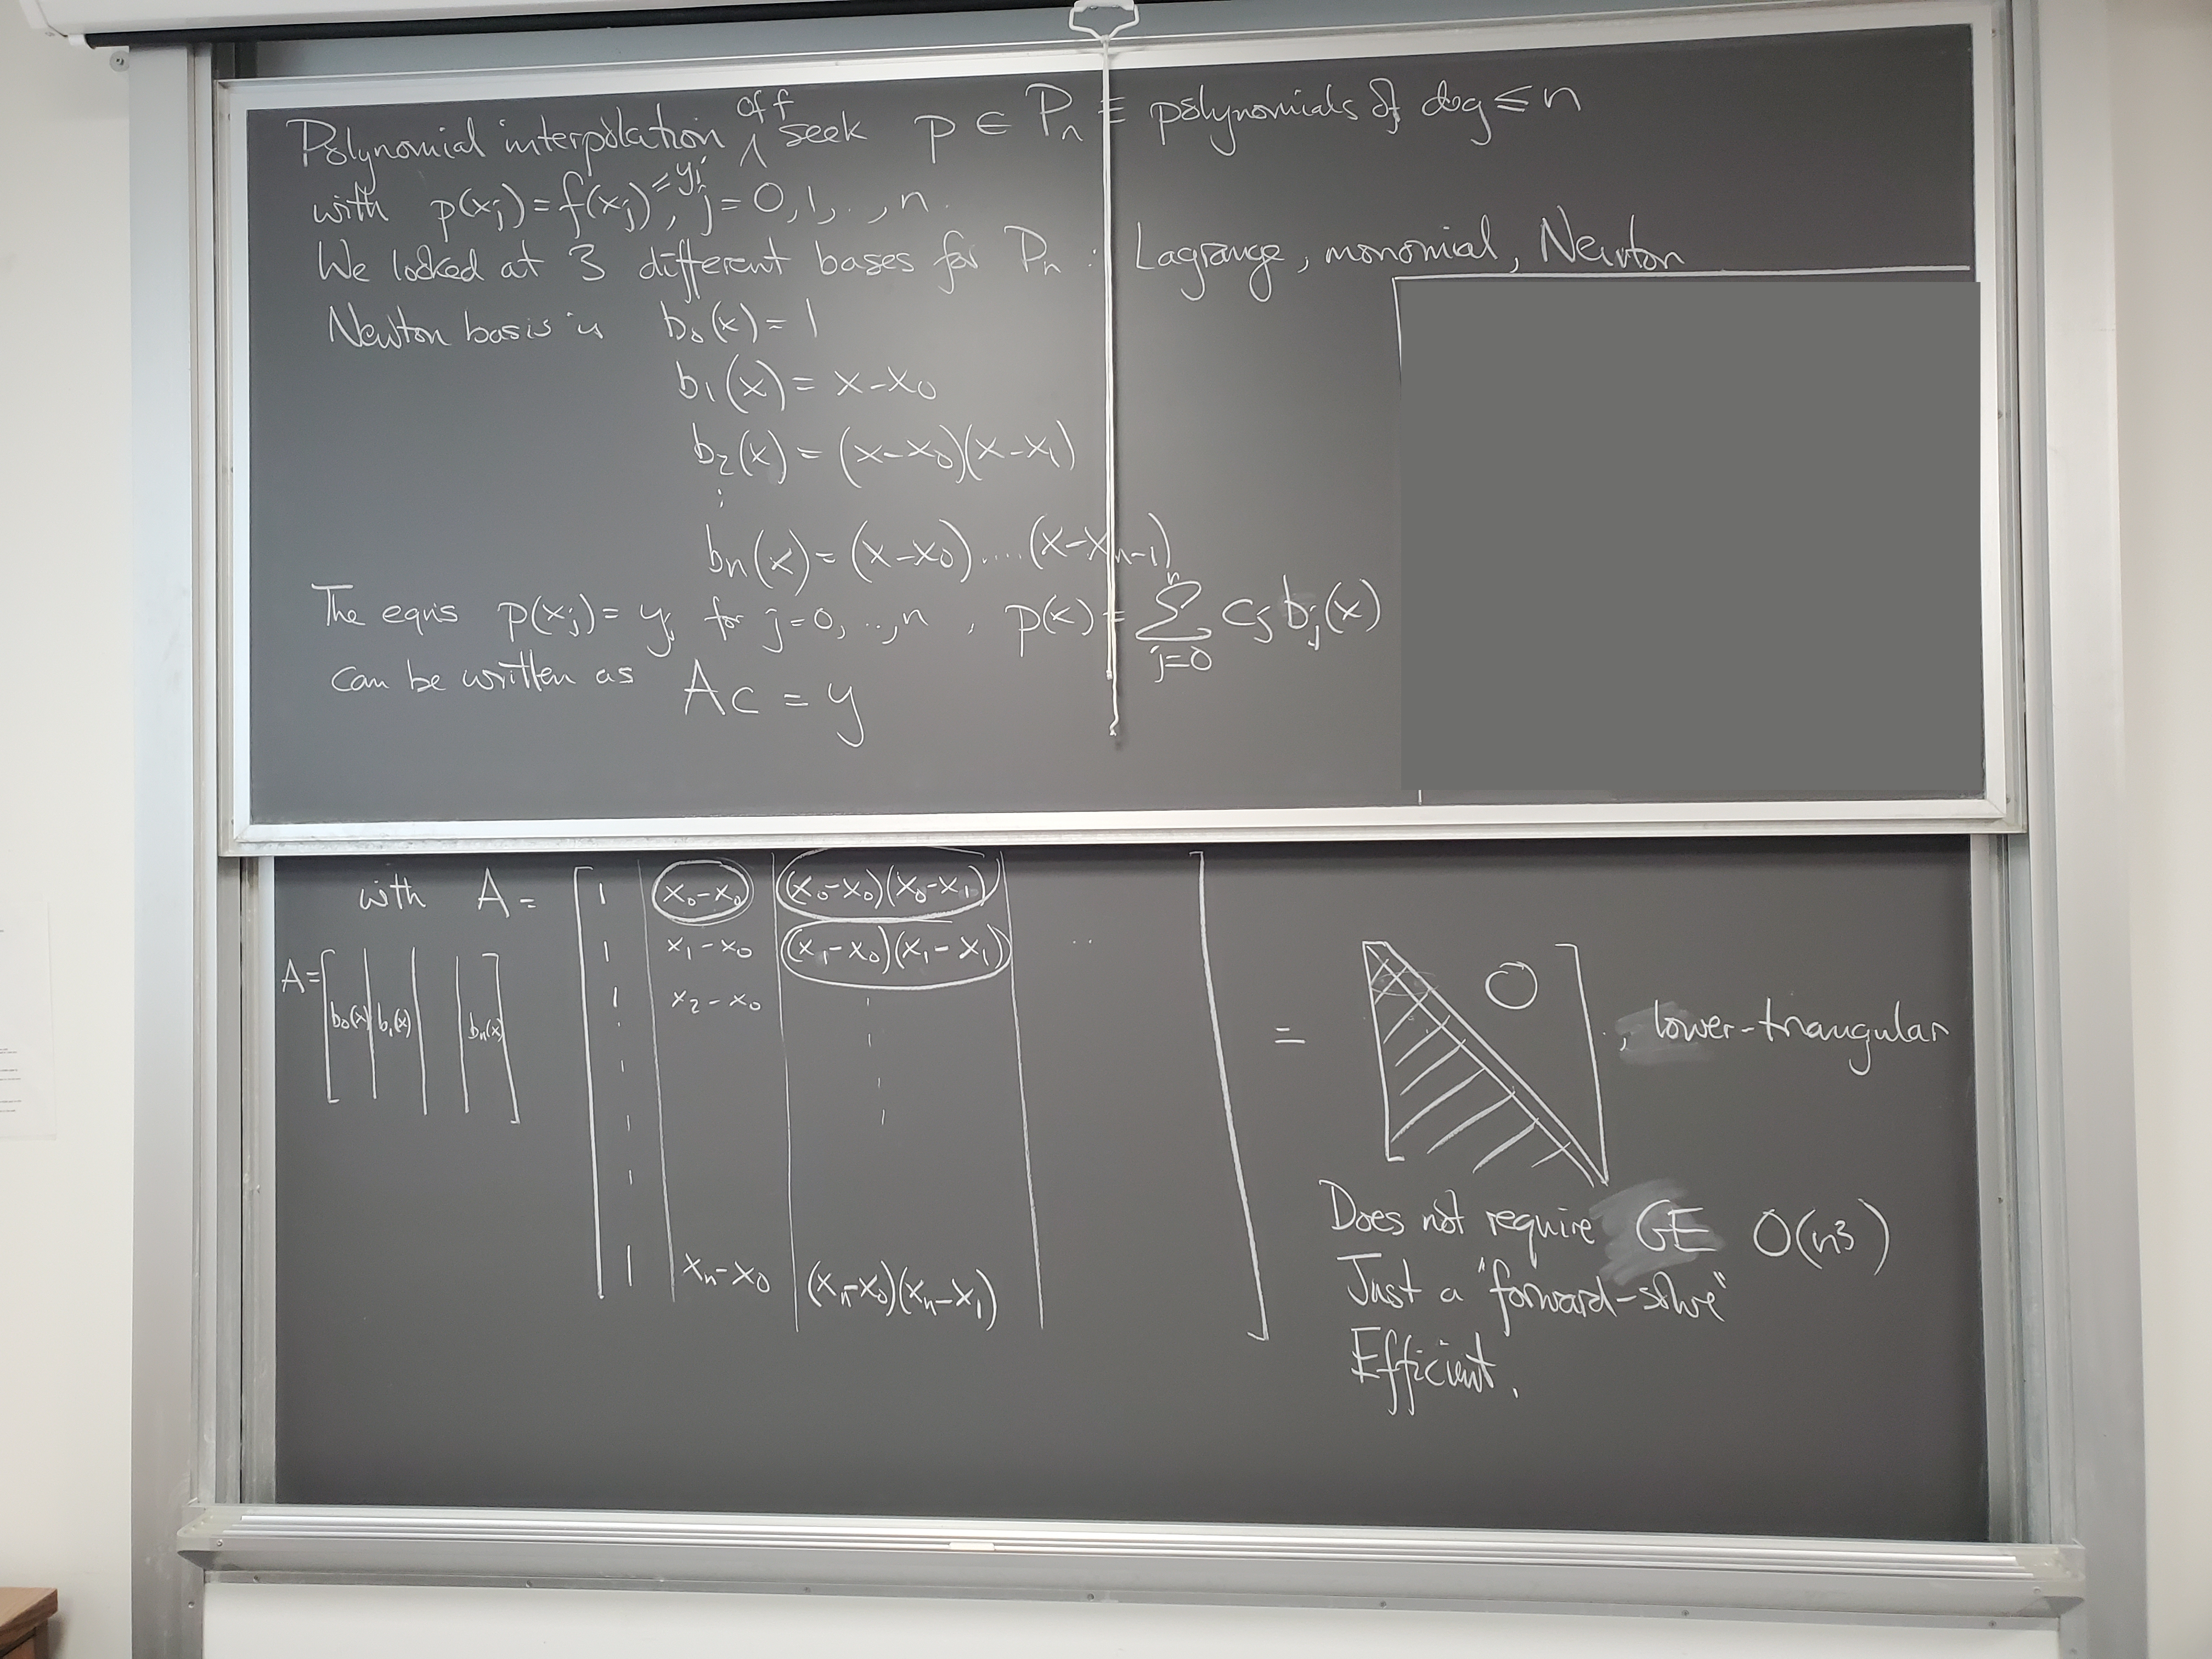 Polynomial interpolation of f seek p ∈ Pₙ ≡ polynomials of deg ≤ n
with p(xⱼ) = f(xⱼ) = yⱼ, j = 0, 1, .., n.
We looked at 3 different bases for Pₙ : Lagrange, monomial, Newton
Newton basis is b₀(x) = 1
b₁(x) = x - x₀
b₂(x) = (x - x₀)(x - x₁)
⋮
bₙ(x) = (x - x₀) .... (x - xₙ₋₁)
The eqns p(xⱼ) = yⱼ for j = 0, .., n , p(x) = ∑ⱼ₌₀ⁿ cⱼ bⱼ(x)
can be written as Ac = y
with A = [ 1 | x₀ - x₀ | (x₀ - x₀)(x₀ - x₁) |
1 | x₁ - x₀ | (x₁ - x₀)(x₁ - x₁) | ..
1 | x₂ - x₀ |
1 | xₙ - x₀ | (xₙ - x₀)(xₙ - x₁) | ]
A = [ b₀(x) | b₁(x) | | bₙ(x) ]
= [ 0 ] , lower-triangular
Does not require GE O(n³)
Just a "forward-solve"
Efficient.